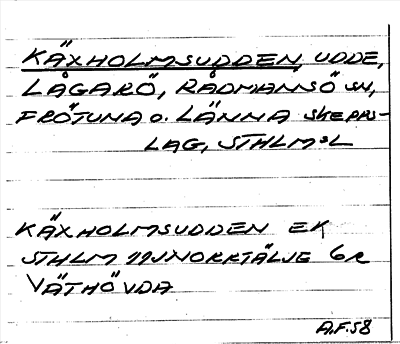 KÄXHOLMSUDDEN, UDDE,
LÅGARÖ, RÅDMANSÖ SN,
FRÖTUNA O. LÄNNA SKEPPS-
LAG, STHLMSL
KÄXHOLMSUDDEN EK
STHLM 99JNORRTÄLJE 6R
VÄTHÖVDA
A.F.58